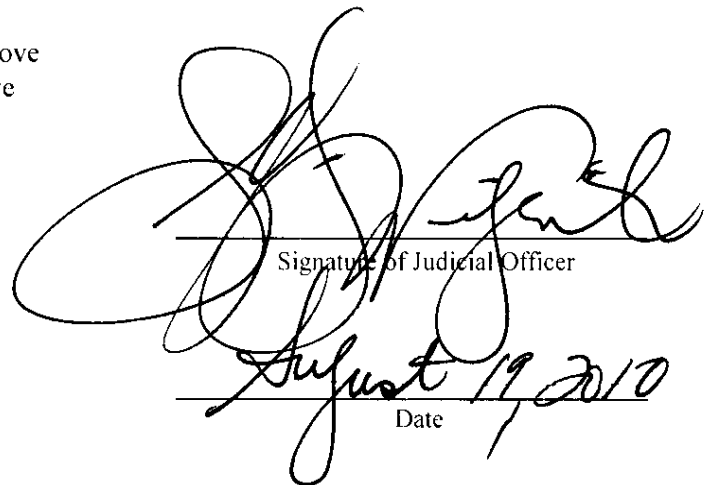 ove
e
Signature of Judicial Officer
August 19, 2010
Date